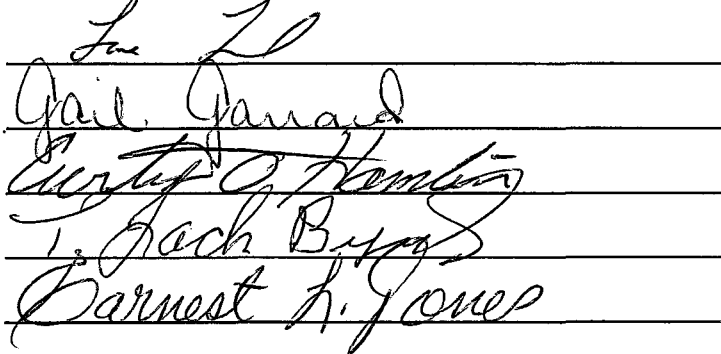 Gail Garrard
Curtis O. Hamlin
T. Zach Byrd
Earnest L. Jones